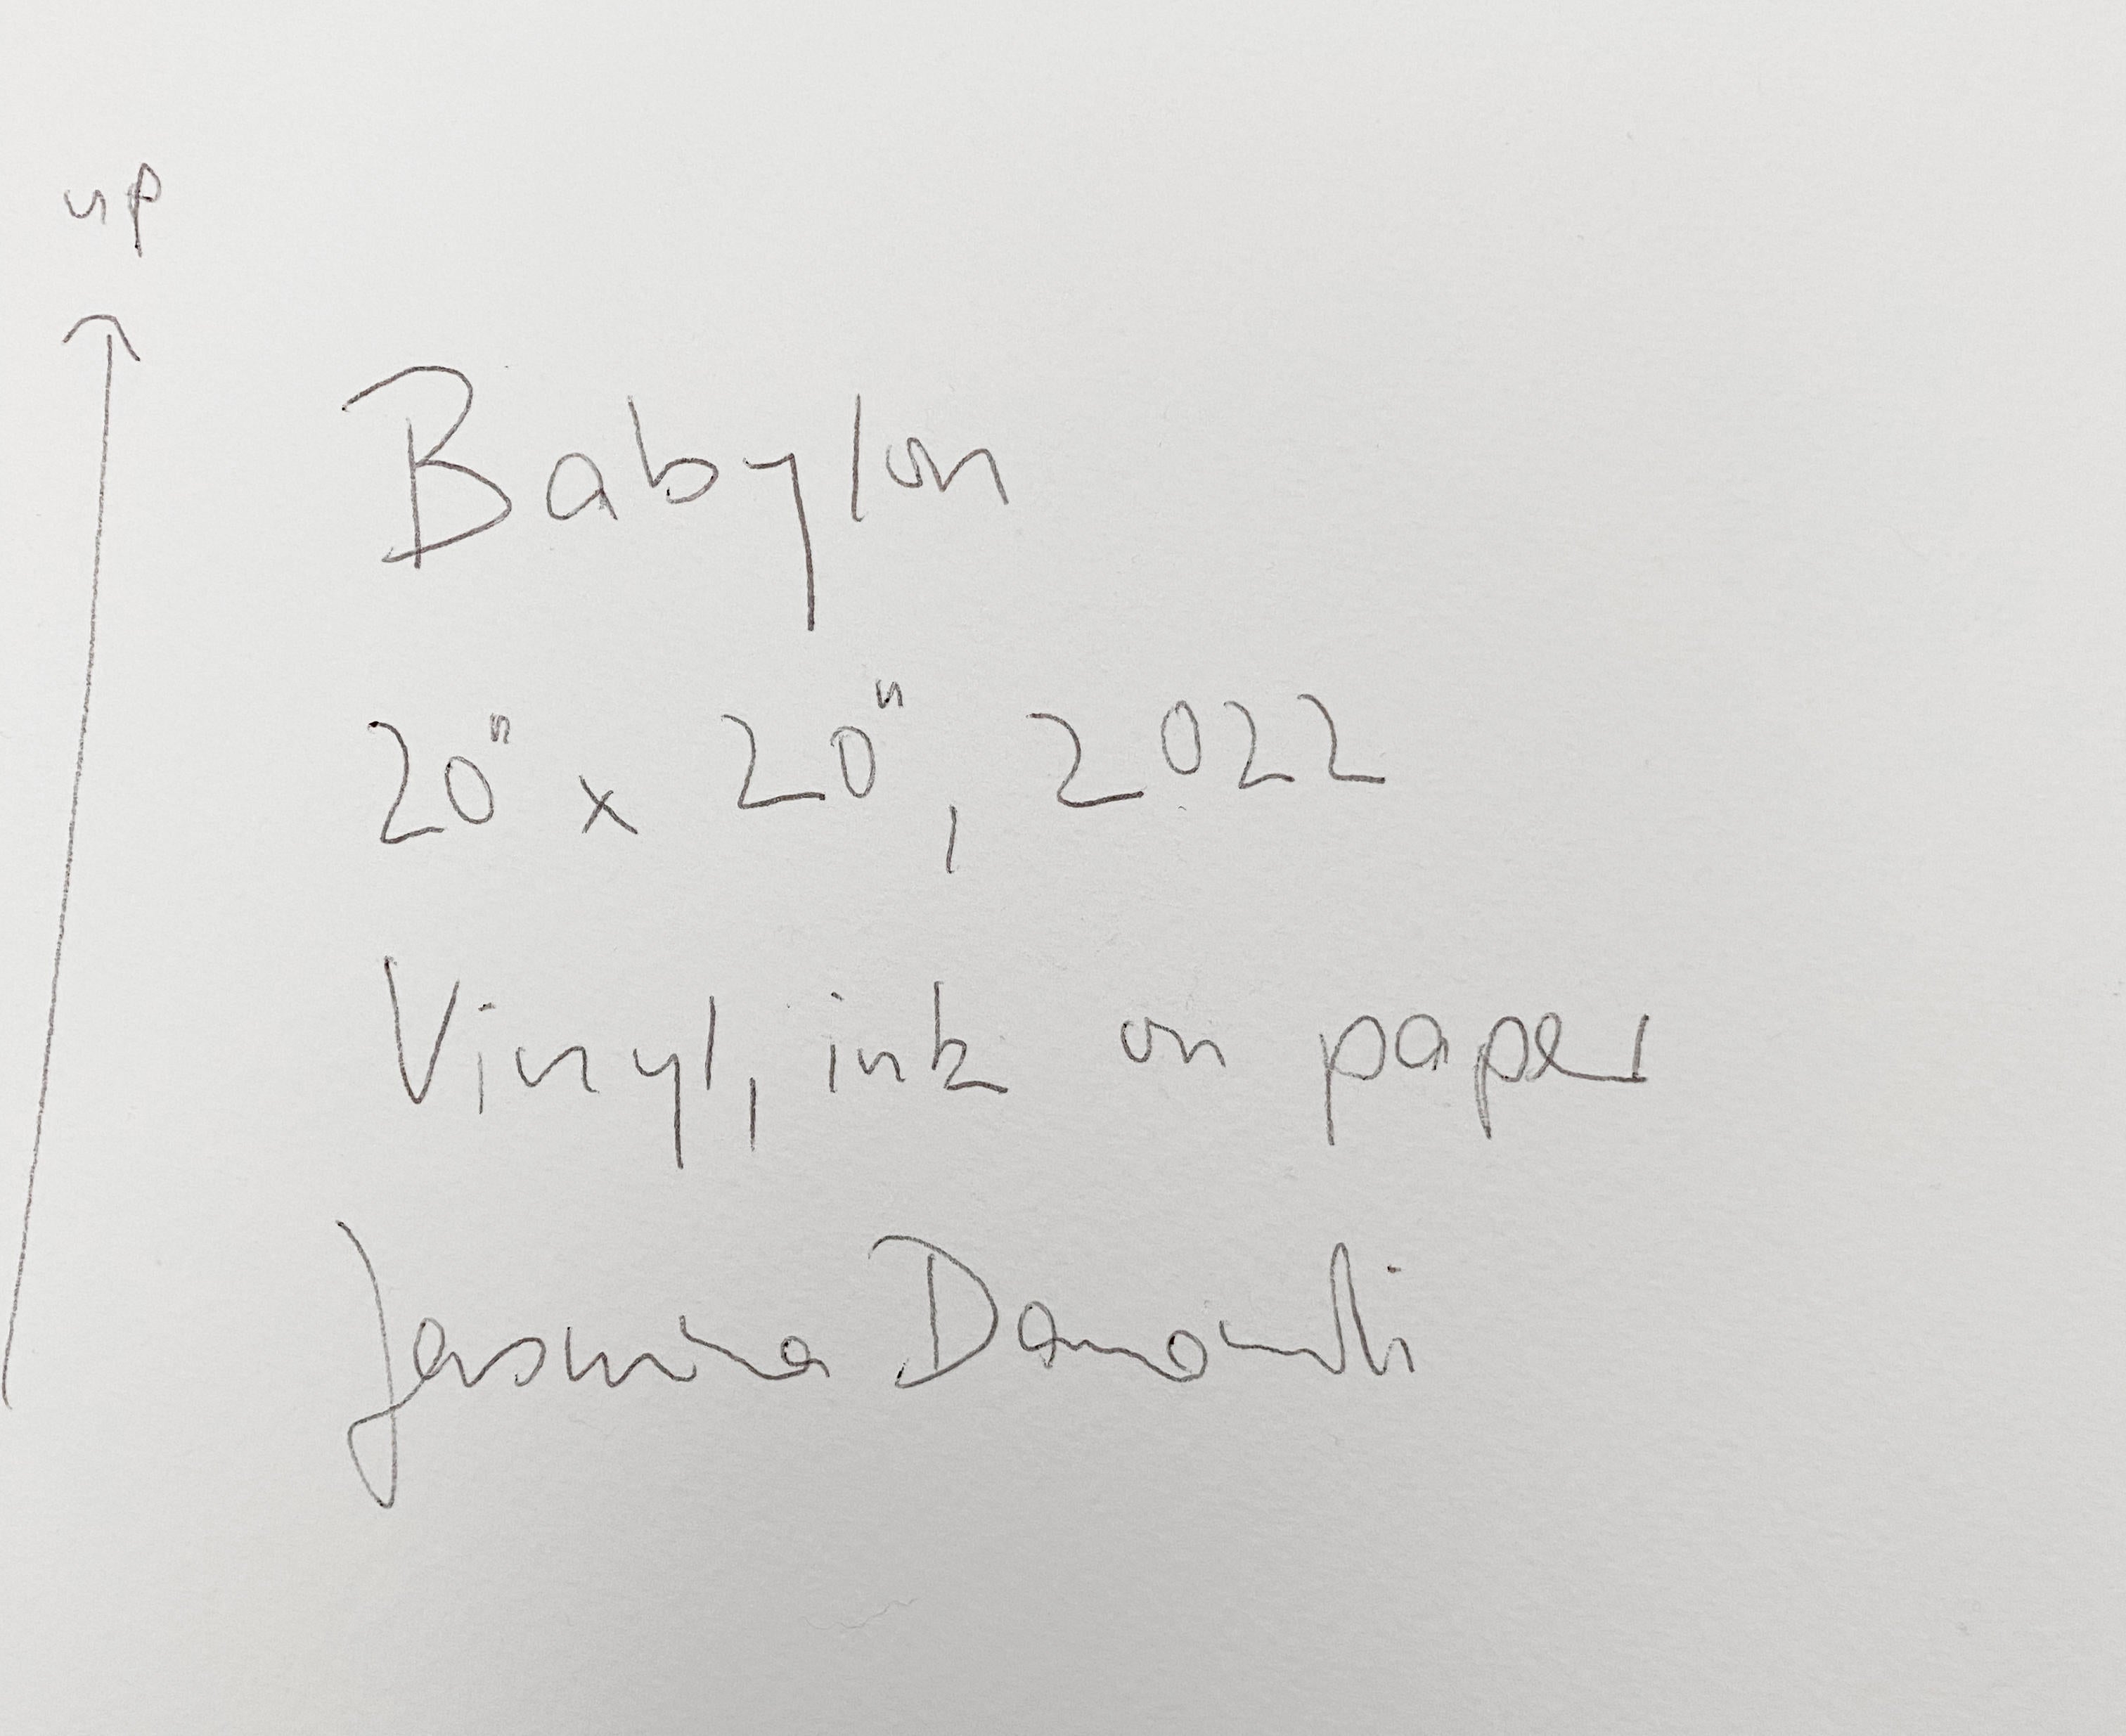 up
Babylon
20" x 20", 2022
Vinyl, ink on paper
Jasmina Danowski